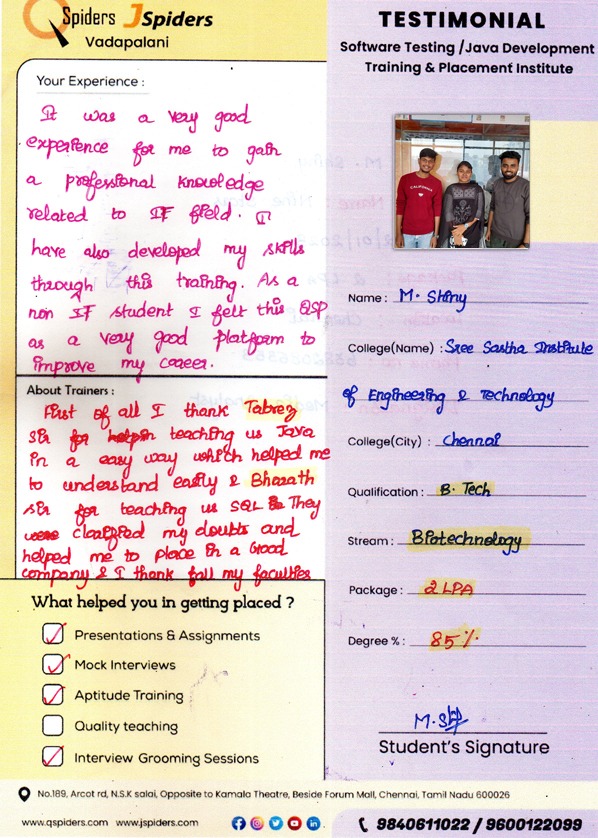 QSpiders JSpiders
Vadapalani
TESTIMONIAL
Software Testing /Java Development
Training & Placement Institute
Your Experience :
It was a very good
experience for me to gain
a professional knowledge
related to IT field. I
have also developed my skills
through this training. As a
non IT student I felt this QSP
as a very good platform to
improve my career.
About Trainers :
First of all I thank Tabrez
sir for teaching us Java
in a easy way which helped me
to understand easily & Bharath
sir for teaching us SQL They
clarified my doubts and
helped me to place in a Good
company & I thank all my faculties
What helped you in getting placed ?
Presentations & Assignments
Mock Interviews
Aptitude Training
Quality teaching
Interview Grooming Sessions
CALIFORNIA
Name : M. Shiny
College(Name) : Sree Sastha Institute
of Engineering & Technology
College(City) : Chennai
Qualification : B. Tech
Stream : Biotechnology
Package : 2 LPA
Degree % : 85%
M.Sh
Student's Signature
No.189, Arcot rd, N.S.K salai, Opposite to Kamala Theatre, Beside Forum Mall, Chennai, Tamil Nadu 600026
www.qspiders.com www.jspiders.com
9840611022 / 9600122099